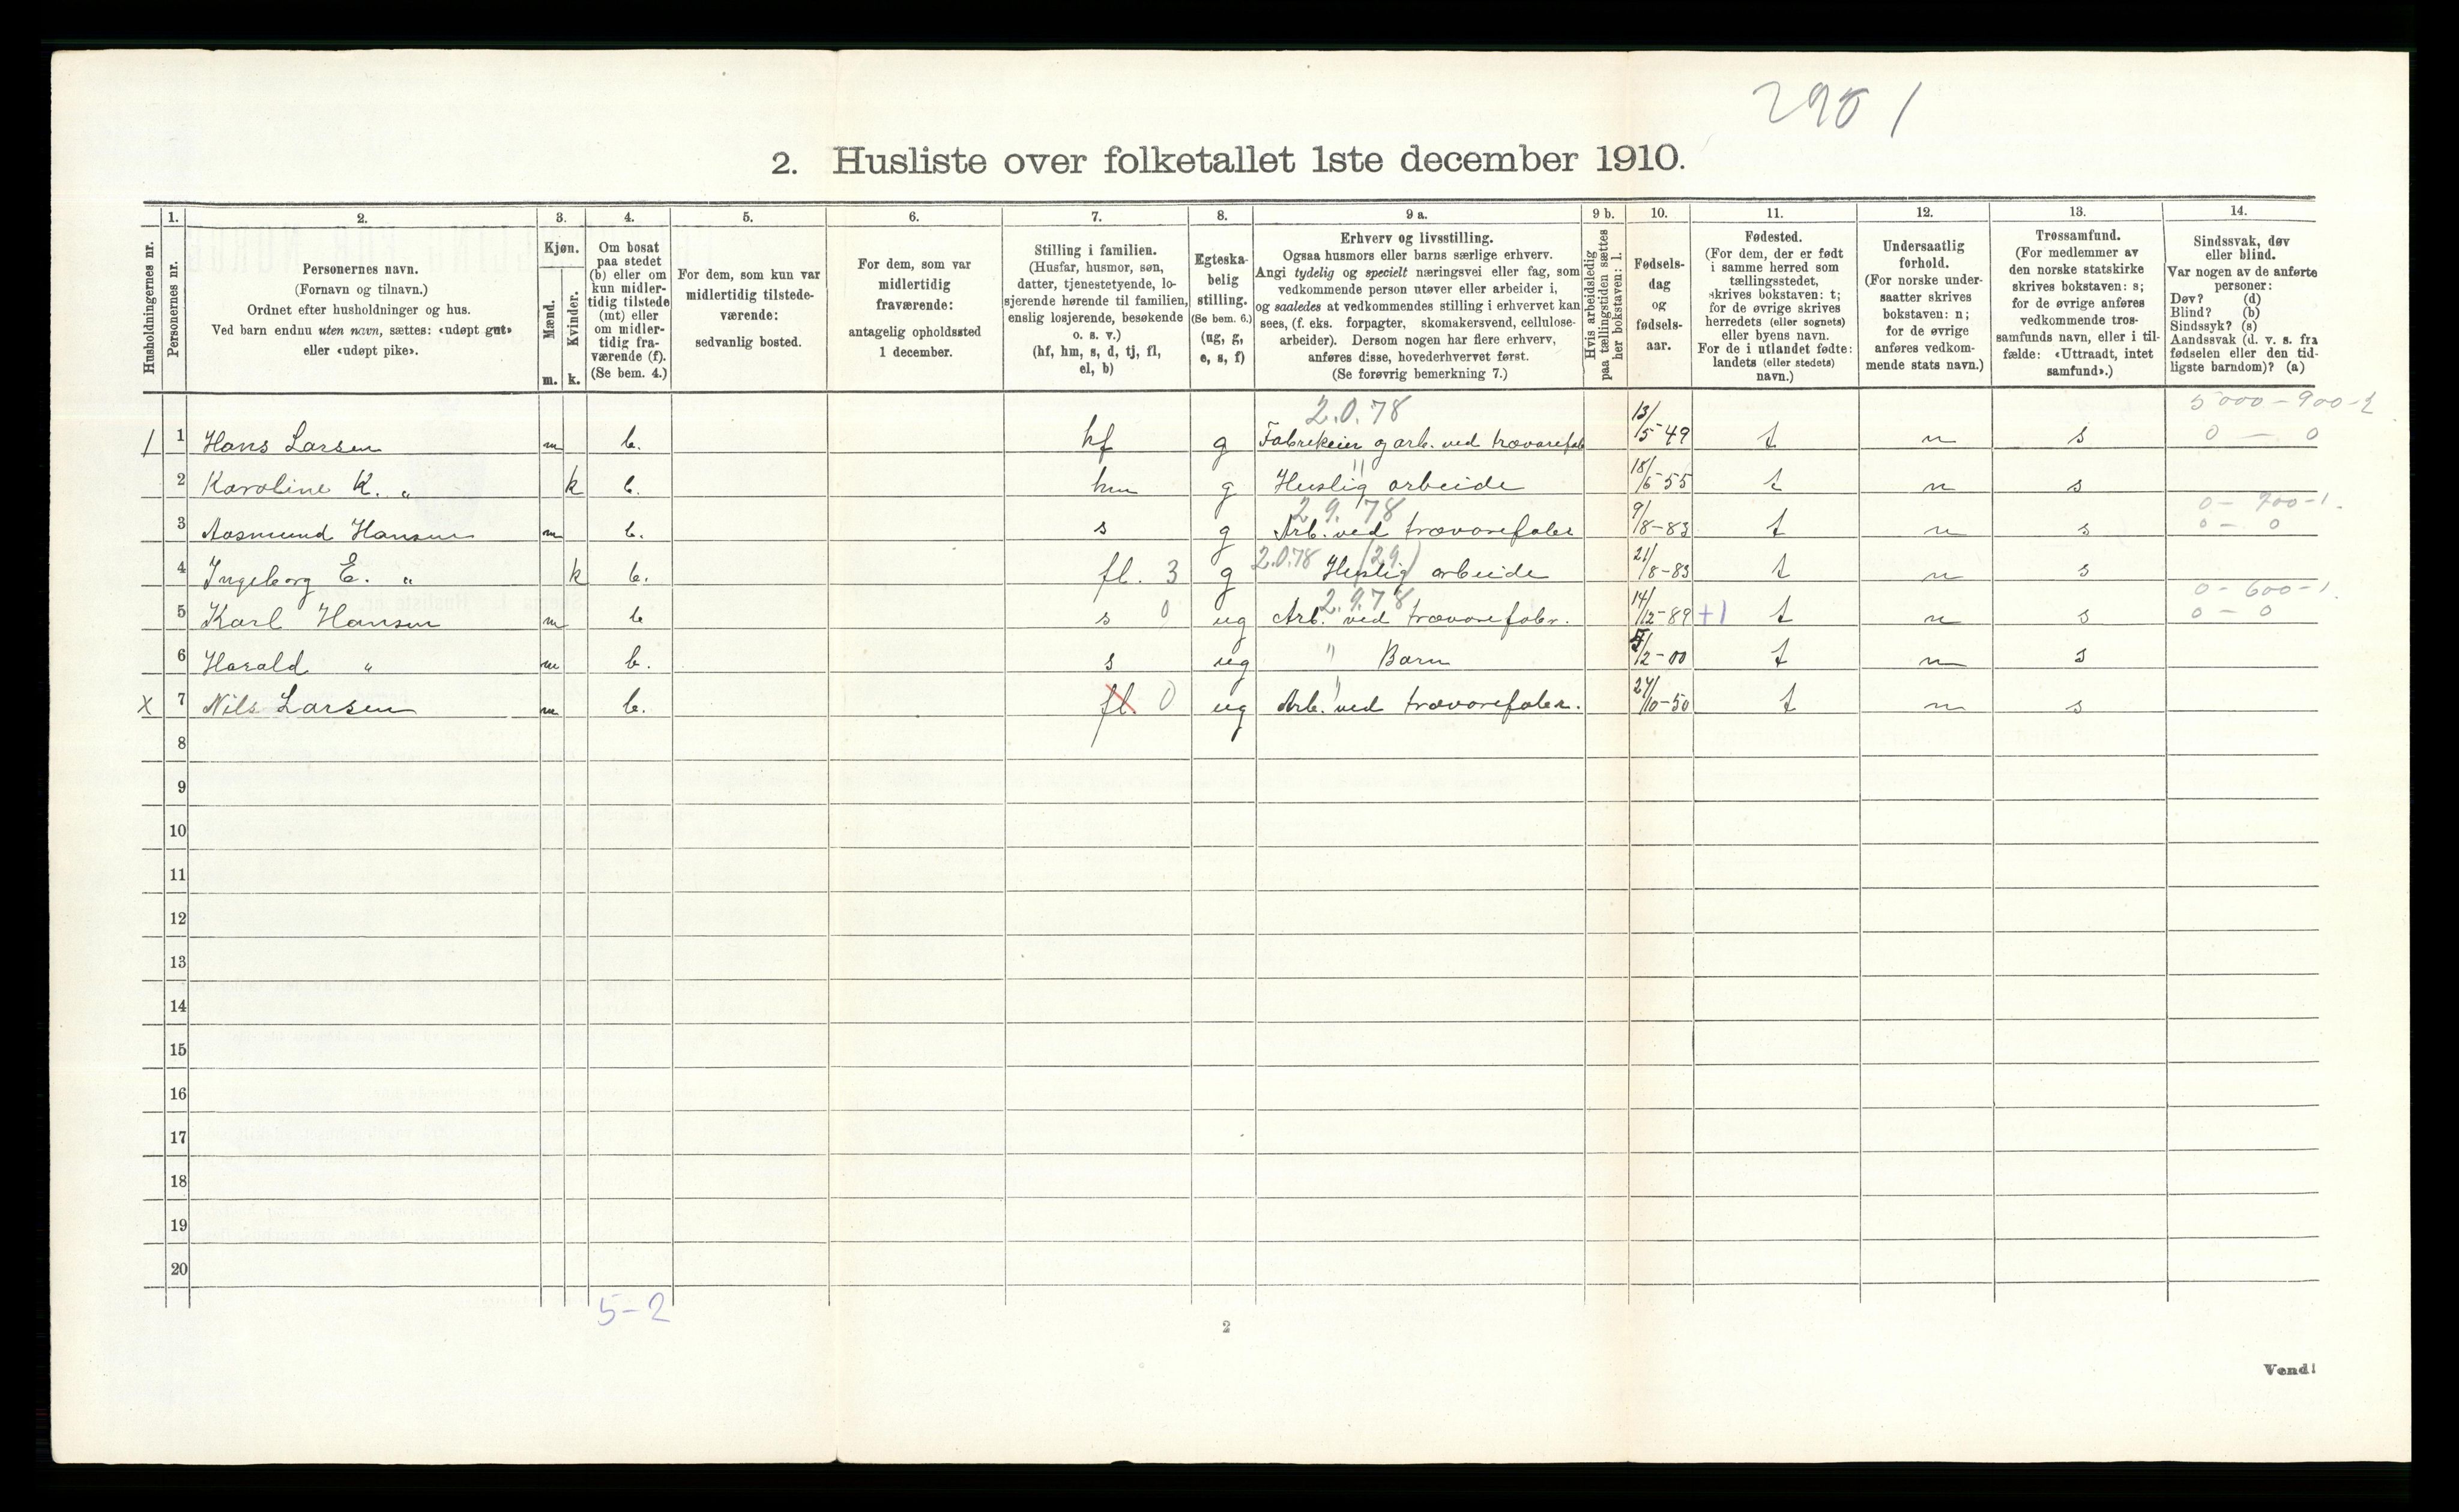 2901
2. Husliste over folketallet 1ste december 1910.
Husholdningernes nr.
1.
Personernes nr.
2.
Personernes navn.
(Fornavn og tilnavn.)
Ordnet efter husholdninger og hus.
Ved barn endnu uten navn, sættes: «udøpt gut»
eller «udøpt pike».
3.
Kjøn.
Mænd.
Kvinder.
m. k.
4.
Om bosat
paa stedet
(b) eller om
kun midler-
tidig tilstede
(mt) eller
om midler-
tidig fra-
værende (f).
(Se bem. 4.)
5.
For dem, som kun var
midlertidig tilstede-
værende:
sedvanlig bosted.
6.
For dem, som var
midlertidig
fraværende:
antagelig opholdssted
1 december.
7.
Stilling i familien.
(Husfar, husmor, søn,
datter, tjenestetyende, lo-
sjerende hørende til familien,
enslig losjerende, besøkende
o. s. v.)
(hf, hm, s, d, tj, fl,
el, b)
8.
Egteska-
belig
stilling.
(Se bem. 6.)
(ug, g,
e, s, f)
9 a.
Erhverv og livsstilling.
Ogsaa husmors eller barns særlige erhverv.
Angi tydelig og specielt næringsvei eller fag, som
vedkommende person utøver eller arbeider i,
og saaledes at vedkommendes stilling i erhvervet kan
sees, (f. eks. forpagter, skomakersvend, cellulose-
arbeider). Dersom nogen har flere erhverv,
anføres disse, hovederhvervet først.
(Se forøvrig bemerkning 7.)
9 b.
Hvis arbeidsledig
paa tællingstiden sættes
her bokstaven: l.
10.
Fødsels-
dag
og
fødsels-
aar.
11.
Fødested.
(For dem, der er født
i samme herred som
tællingsstedet,
skrives bokstaven: t;
for de øvrige skrives
herredets (eller sognets)
eller byens navn.
For de i utlandet fødte:
landets (eller stedets)
navn.)
12.
Undersaatlig
forhold.
(For norske under-
saatter skrives
bokstaven: n;
for de øvrige
anføres vedkom-
mende stats navn.)
13.
Trossamfund.
(For medlemmer av
den norske statskirke
skrives bokstaven: s;
for de øvrige anføres
vedkommende tros-
samfunds navn, eller i til-
fælde: «Uttraadt, intet
samfund».)
14.
Sindssvak, døv
eller blind.
Var nogen av de anførte
personer:
Døv? (d)
Blind? (b)
Sindssyk? (s)
Aandssvak (d. v. s. fra
fødselen eller den tid-
ligste barndom)? (a)
2.0.78 5000-900-2
1 1 Hans Larsen m b. hf g Fabrikeier og arb. ved trævarefab 13/5-49 t n s 0 - 0
2 Karoline K. " k b. hm g Huslig arbeide 18/6-55 t n s
2.9.78 0-700-1.
3 Aasmund Hansen m b. s g Arb. ved trævarefabr 9/8-83 t n s 0 - 0
4 Ingeborg E. " k b. fl. 3 g 2.0.78 Huslig (29.) arbeide 21/8-83 t n s
2.9.78 0-600-1.
5 Karl Hansen m b s 0 ug Arb. ved trævarefabr. 14/12-89 +1 t n s 0 - 0
6 Harald " m b. s ug " Barn 5/2-00 t n s
x 7 Nils Larsen m b. fl. 0 ug Arb. ved trævarefabr. 24/10-50 t n s
8
9
10
11
12
13
14
15
16
17
18
19
20
5-2
2
Vend!